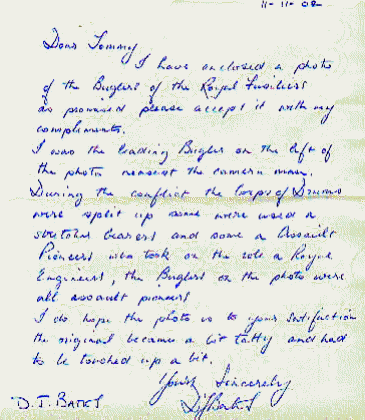 11-11-02
Dear Tommy
I have enclosed a photo
of the Buglers of the Royal Fusiliers
as promised please accept it with my
compliments.
I was the leading Bugler on the left of
the photo nearest the camera man.
During the conflict the Corps of Drums
were split up some were used a
stretcher bearers and some a Assault
Pioneers who took on the role a Royal
Engineers, the Buglers on the photo were
all assault pioneers
I do hope the photo is to your satisfaction
the original became a bit tatty and had
to be touched up a bit.
Yours Sincerely
D. J. BATES